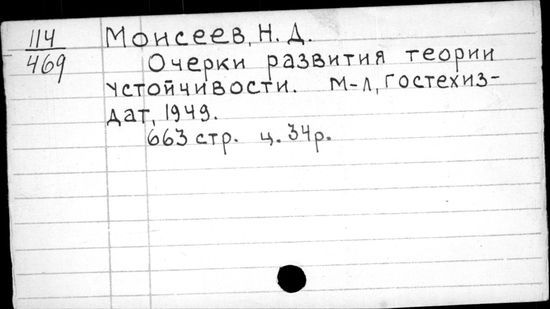 114
469
Моисеев, Н. Д.
Очерки развития теории
устойчивости. М-Л, Гостехиз-
дат, 1949.
663 стр. ц. 34р.